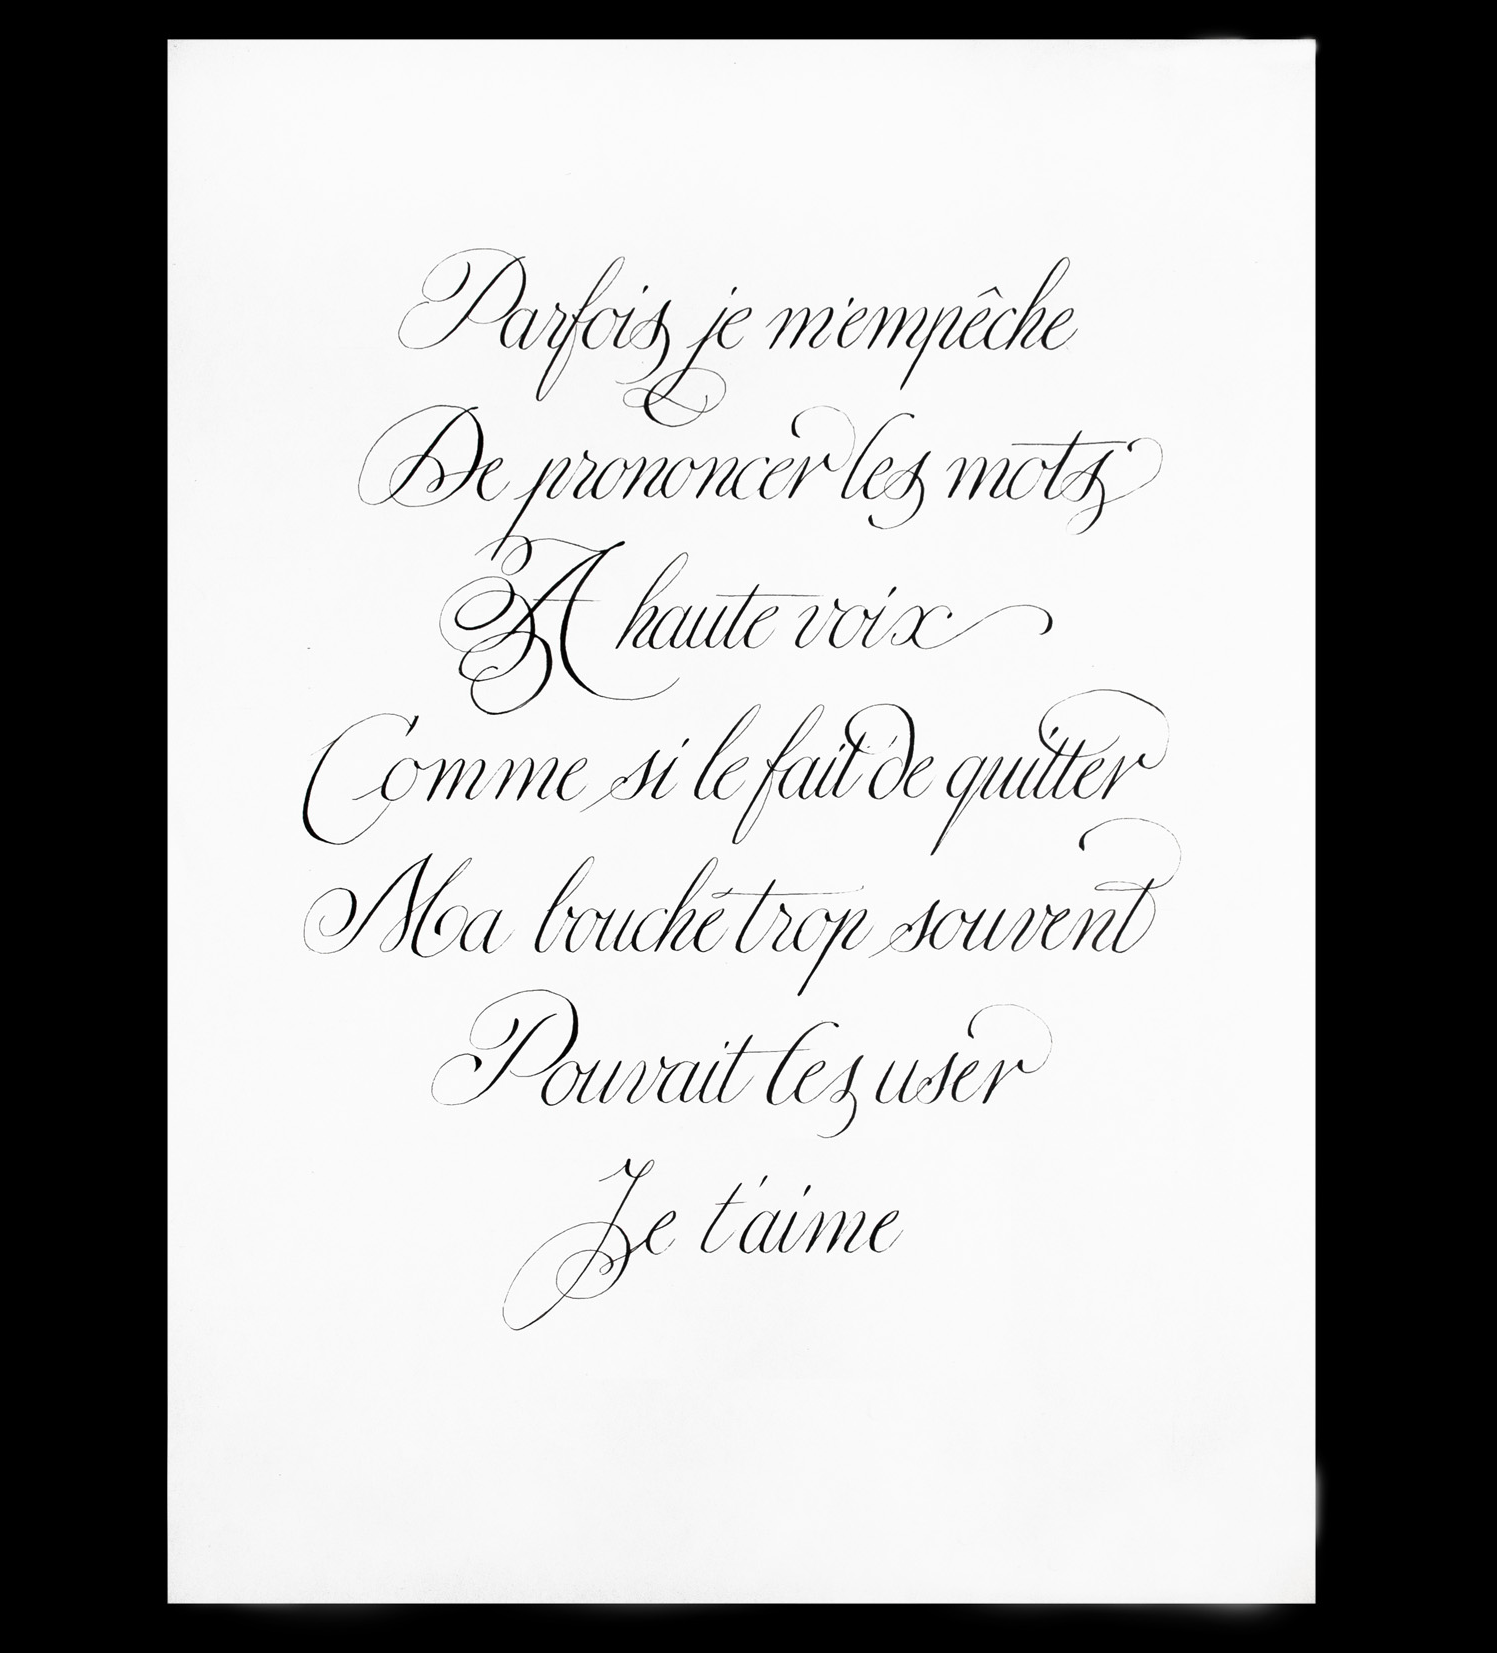 Parfois je m'empêche
De prononcer les mots
A haute voix
Comme si le fait de quitter
Ma bouche trop souvent
Pouvait les user
Je t'aime